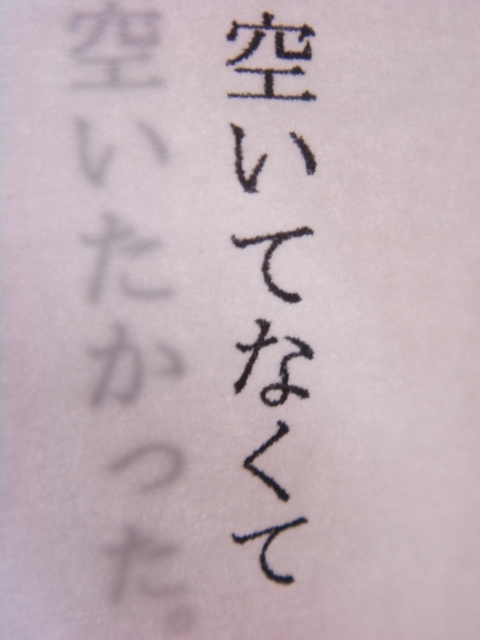 空いてなくて
空いたかった。